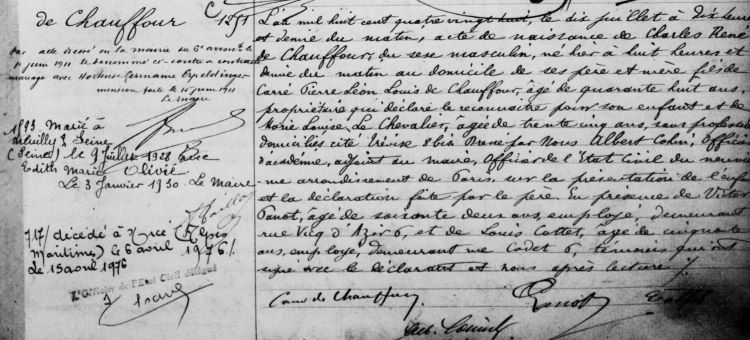 de Chauffour 1251
par acte dressé en la mairie du 6e arronst le
1er juin 1911 le dénommé ci-contre a contracté
mariage avec Hortense Germaine
mention faite le 15 juin 1911
Le Maire
1893. Marié à
Neuilly s Seine
(Seine) le 9 juillet 1928 avec
Edith Marie Olivié
Le 3 Janvier 1930. Le Maire
717/ décédé à (Alpes
Maritimes) le 6 avril 1976/.
Le 15 avril 1976
L'Officier de l'Etat Civil délégué
L'an mil huit cent quatre vingt huit, le dix juillet à dix heures
et demie du matin, acte de naissance de Charles René
de Chauffour, du sexe masculin, né hier à huit heures et
demie du matin au domicile de ses père et mère fils de
Carré Pierre Léon Louis de Chauffour, âgé de quarante huit ans,
propriétaire qui déclare le reconnaître pour son enfant et de
Marie Louise Le Chevalier, âgée de trente cinq ans, sans profession
domiciliés cité Trévise 8 bis Dressé par Nous Albert Cohn, Officier
d'académie, adjoint au maire, Officier de l'Etat Civil du neuviè-
me arrondissement de Paris sur la présentation de l'enfant
et la déclaration faite par le père. En présence de Victor
Panot, âgé de soixante deux ans, employé, demeurant
rue Vicq d'Azir 6, et de Louis Cottet, âgé de cinquante
ans, employé, demeurant rue Cadet 6, témoins qui ont
signé avec le déclarant et nous après lecture /.
Carré de Chauffour Panot Cottet